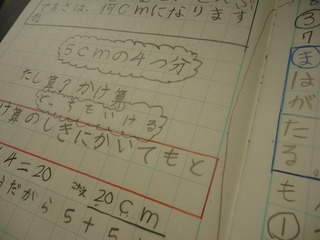 できは、何cmになります
5cmの4つ分
たし算?かけ算
どっちもいける
け算のしきにかいてもと
4=20
20cm
だから 5+5
③
7
まはが
たる。
も
①